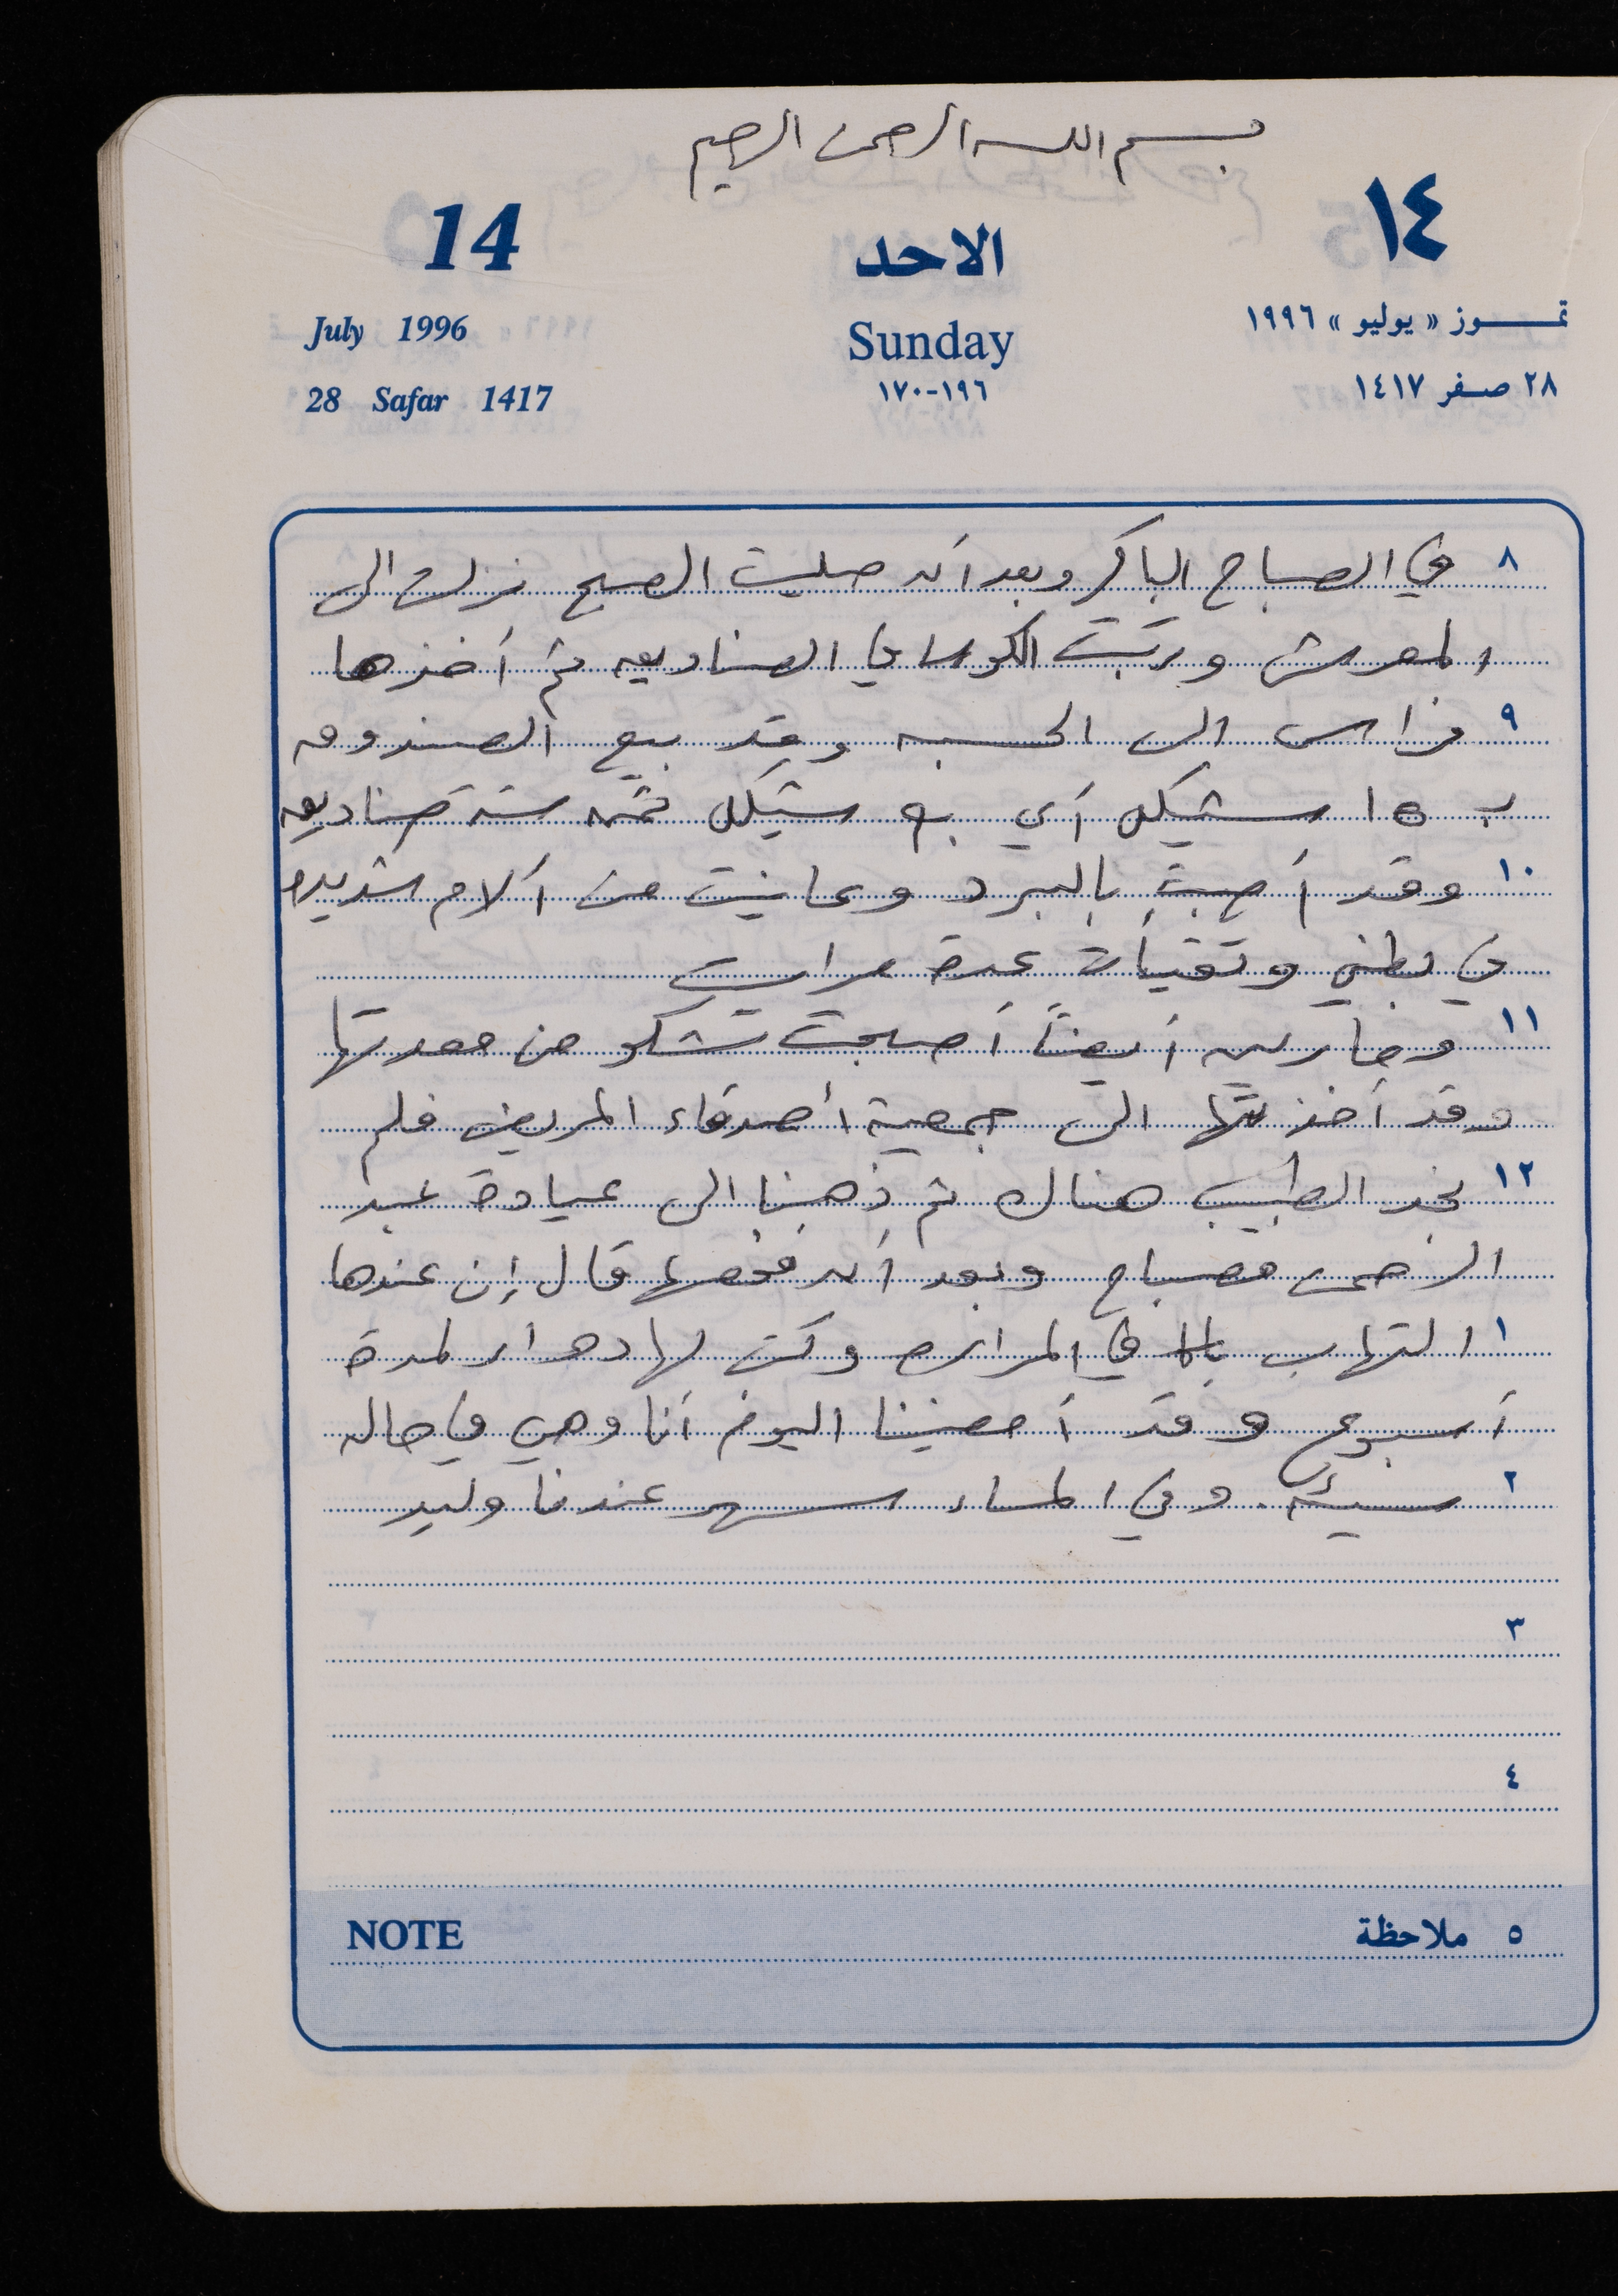 بسم الله الرحمن الرحيم
14 الاحد ١٤
July 1996 Sunday تمـوز « يوليو » ١٩٩٦
28 Safar 1417 ١٩٦-١٧٠ ٢٨ صفر ١٤١٧
٨ في الصباح الباكر وبعد أن صليت الصبح نزلت الى
المعرش ورتبت الكوسا في الصناديق ثم أخذها
٩ فراس الى الحسبه وقد بيع الصندوق
بـ ١٥ شيكل أي بـ ٩٠ شيكل ثمن ستة صناديق
١٠ وقد أصبت بالبرد وعانيت من آلام شديده
في بطني وتقيأت عدة مرات
١١ أيضاً أصبحت تشكو من معدتها
وقد أخذتها الى جمعية أصدقاء المريض فلم
١٢ نجد الطبيب هناك ثم ذهبنا الى عيادة عبد
الرحمن مصباح وبعد أن فحصها قال إن عندها
١ التهاب في المراره وكتب لها دواء لمدة
أسبوع وقد أمضينا اليوم أنا وهي في حاله
٢ سيئه. وفي المساء سهر عندنا وليد
٣
٤
NOTE ٥ ملاحظة